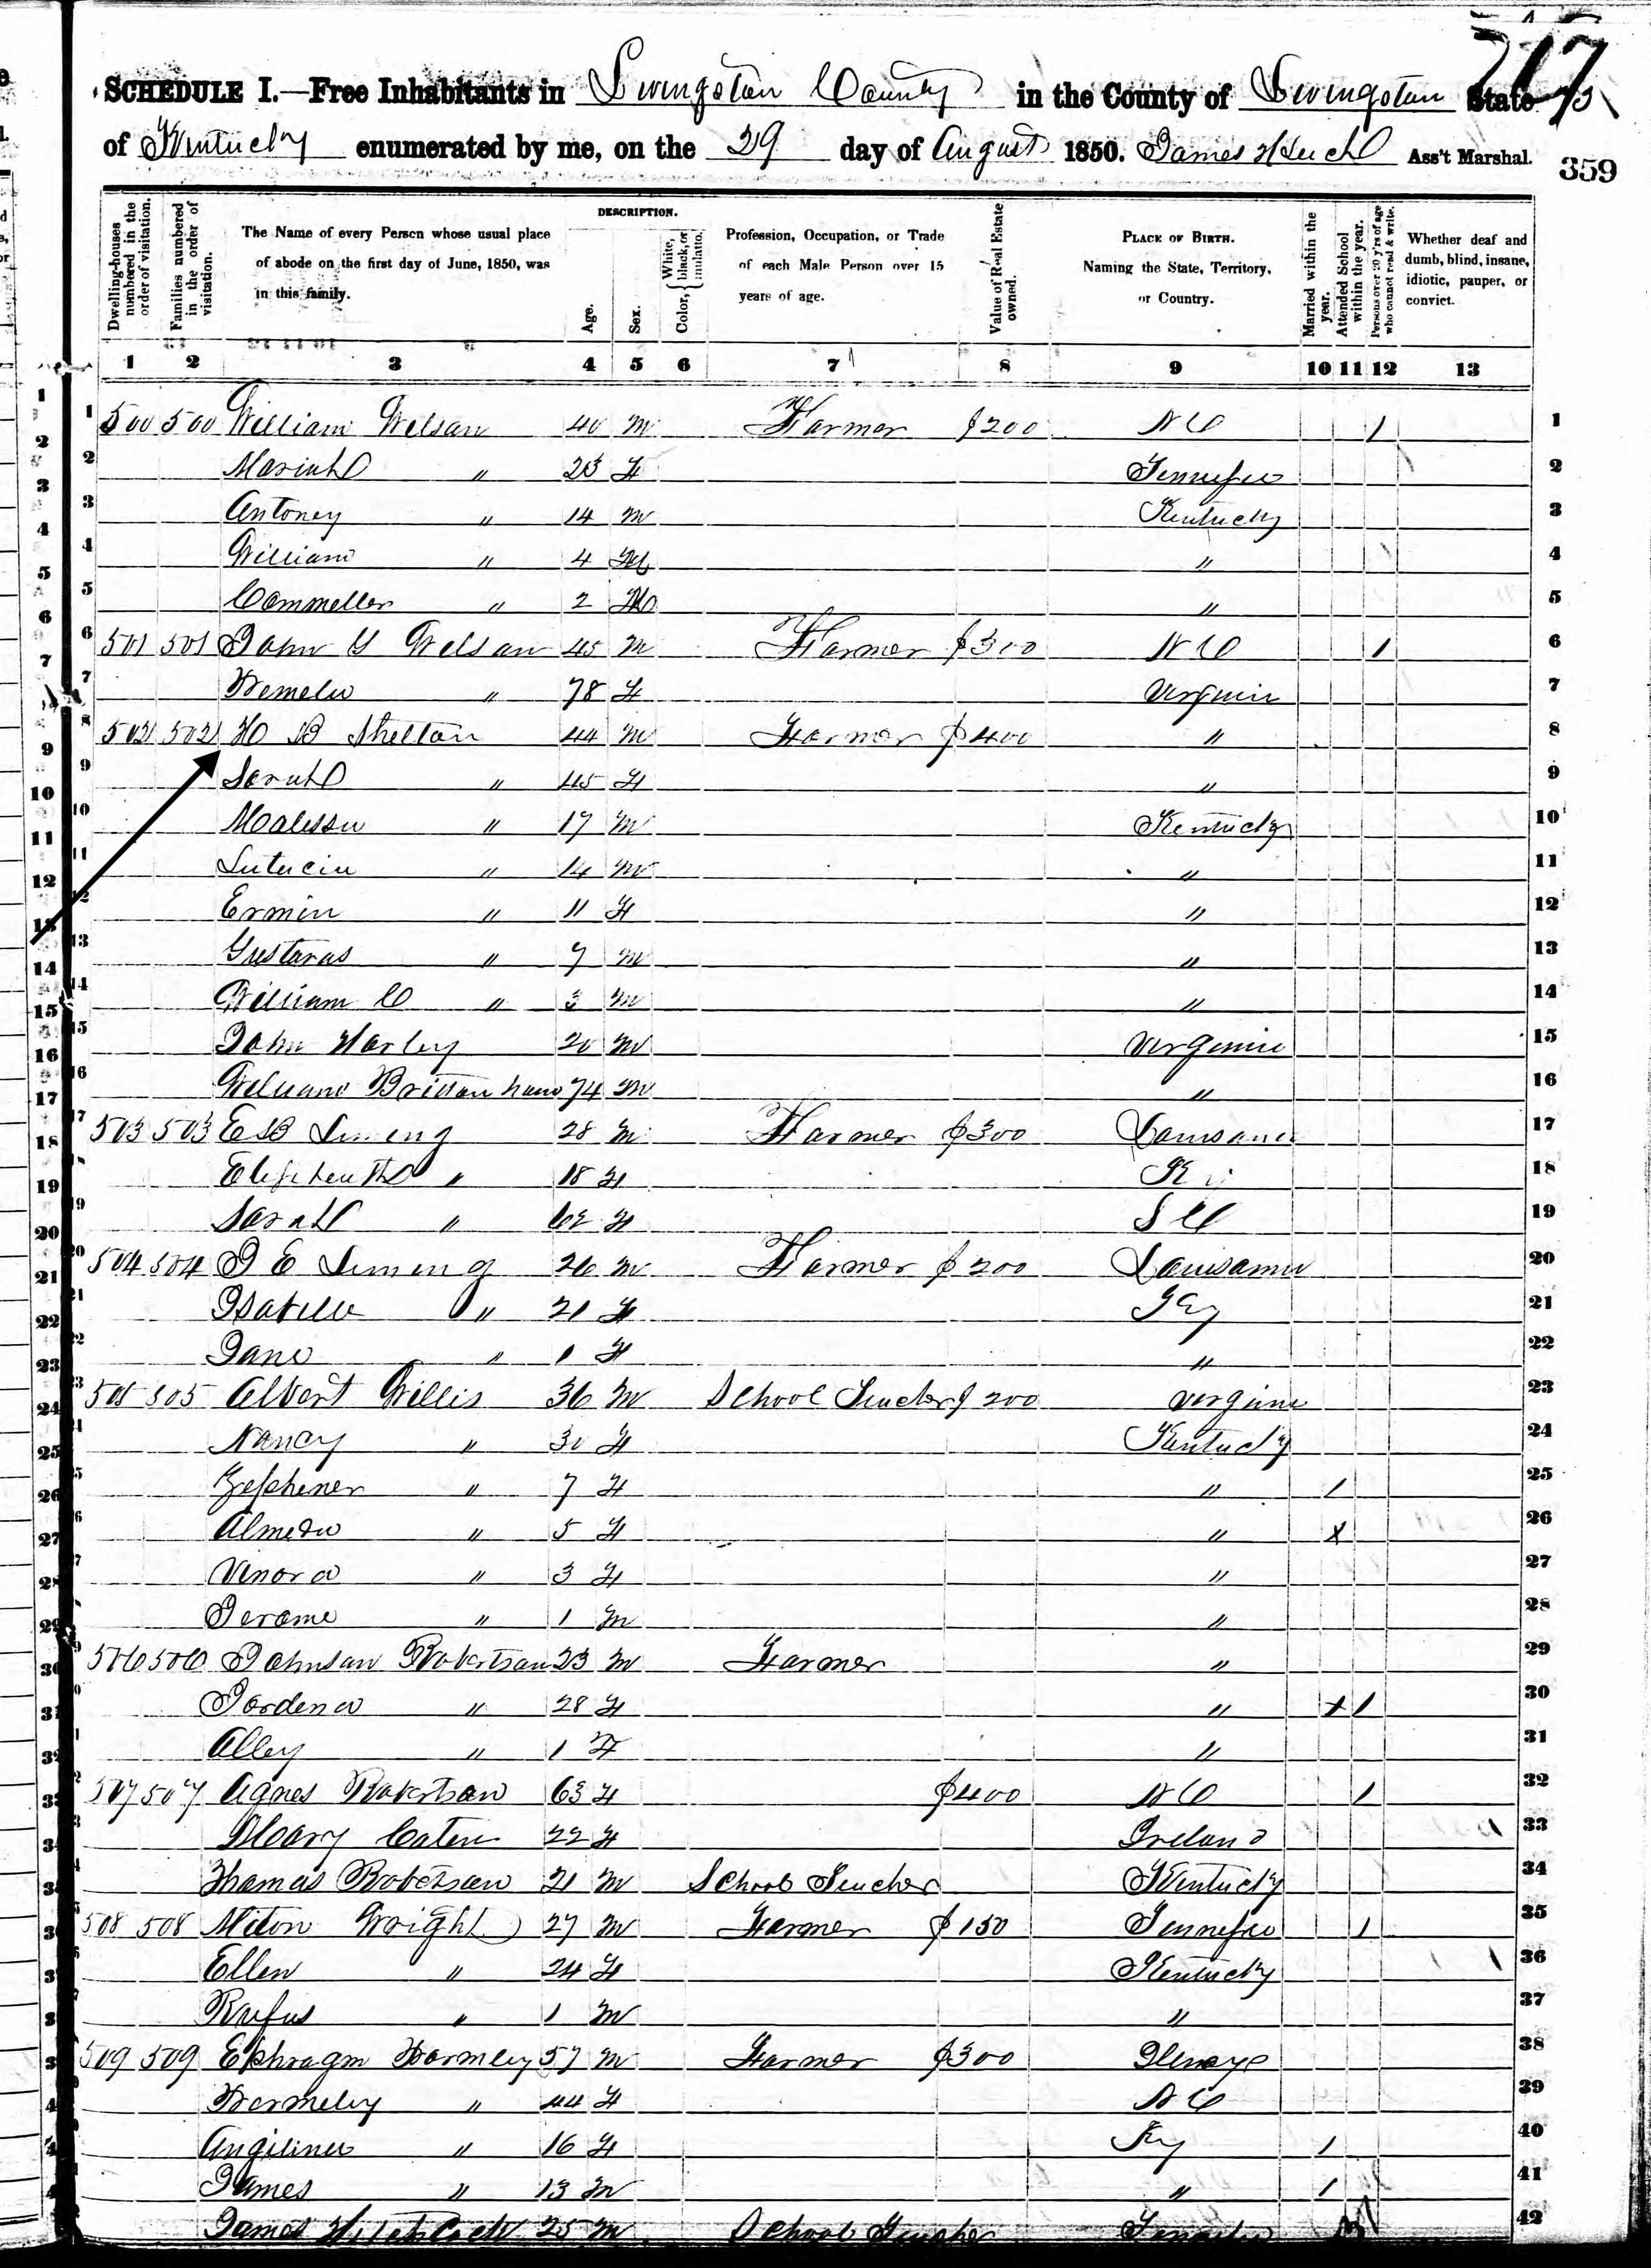 717
SCHEDULE I.—Free Inhabitants in Livingston County in the County of Livingston State
of Kentucky enumerated by me, on the 29 day of August 1850. James Ass't Marshal.
359
Dwelling-houses numbered in the order of visitation.
Families numbered in the order of visitation.
The Name of every Person whose usual place of abode on the first day of June, 1850, was in this family.
DESCRIPTION.
Age.
Sex.
Color, { White, black, or mulatto.
Profession, Occupation, or Trade of each Male Person over 15 years of age.
Value of Real Estate owned.
PLACE OF BIRTH. Naming the State, Territory, or Country.
Married within the year.
Attended School within the year.
Persons over 20 y'rs of age who cannot read & write.
Whether deaf and dumb, blind, insane, idiotic, pauper, or convict.
1 2 3 4 5 6 7 8 9 10 11 12 13
1 500 500 William Welsan 40 M Farmer $200 N C / 1
2 Mariah " 23 F Tennessee 2
3 Antoney " 14 M Kentucky 3
4 William " 4 M " 4
5 " 2 M " 5
6 501 501 John G Welsan 45 M Farmer $300 N C / 6
7 " 78 F Virginia 7
8 502 502 H B Shelton 44 M Farmer $400 " 8
9 Sarah " 45 F " 9
10 Malissa " 17 M Kentucky 10
11 Luticia " 14 M " 11
12 Ermin " 11 F " 12
13 Gustavas " 7 M " 13
14 William C " 3 M " 14
15 John Harley 20 M Virginia 15
16 William Brittan 74 M " 16
17 503 503 E B 28 M Farmer $300 Louisana 17
18 " 18 F K 18
19 Sarah " 62 F S C 19
20 504 504 J E 26 M Farmer $200 Louisanna 20
21 Isabella " 21 F Ky 21
22 Jane " 1 F " 22
23 505 505 Albert Willis 36 M School Teacher $200 Virginia 23
24 Nancy " 30 F Kentucky 24
25 Zephener " 7 F " / 25
26 Almeda " 5 F " x 26
27 Venora " 3 F " 27
28 Jerome " 1 M " 28
29 506 506 Johnsan Robertsan 23 M Farmer " 29
30 Jordena " 28 F " x / 30
31 Alley " 1 F " 31
32 507 507 Agnes Robertsan 63 F $400 N C / 32
33 Mary Caten 22 F Ireland 33
34 Thomas Robetsan 21 M School Teacher Kentucky 34
35 508 508 Milton Wright 27 M Farmer $150 Tennessee / 35
36 Ellen " 24 F Kentucky 36
37 Rufus " 1 M " 37
38 509 509 Ephragm 57 M Farmer $300 38
39 " 44 F N C 39
40 Angiliner " 16 F Ky / 40
41 James " 13 M " / 41
James 25 M School Teacher 42